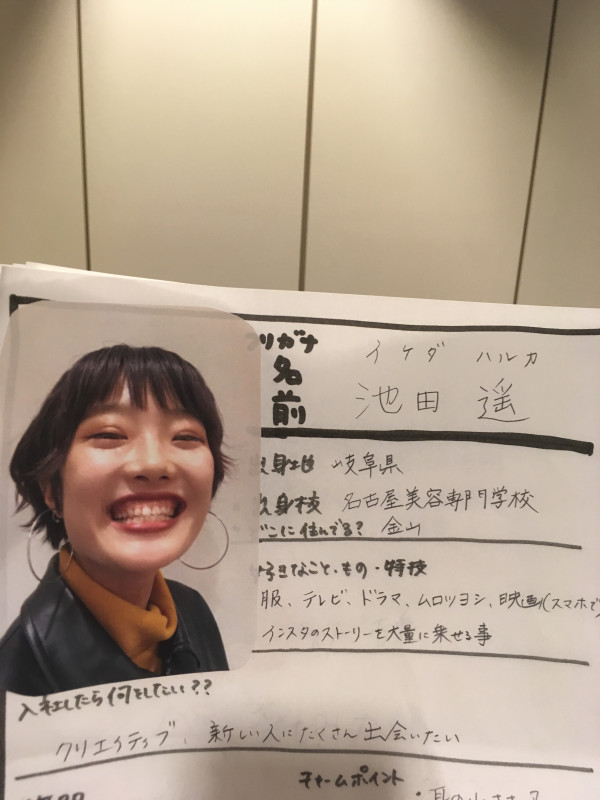 フリガナ イケダ ハルカ
名前 池田 遥
出身地 岐阜県
出身校 名古屋美容専門学校
どこに住んでる? 金山
好きなこと・もの・特技
服、テレビ、ドラマ、ムロツヨシ、映画(スマホで)
インスタのストーリーを大量に乗せる事
入社したら何をしたい??
クリエイティブ、新しい人にたくさん出会いたい
チャームポイント